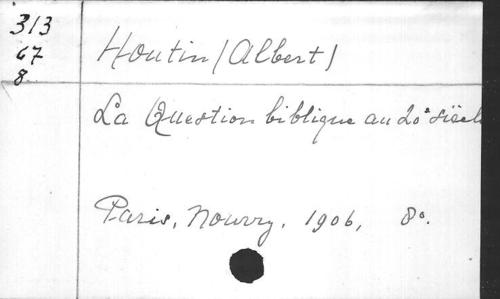 313
67
8
Houtin (Albert)
La Question biblique au 20e siècle
Paris, Nourry, 1906, 8o.